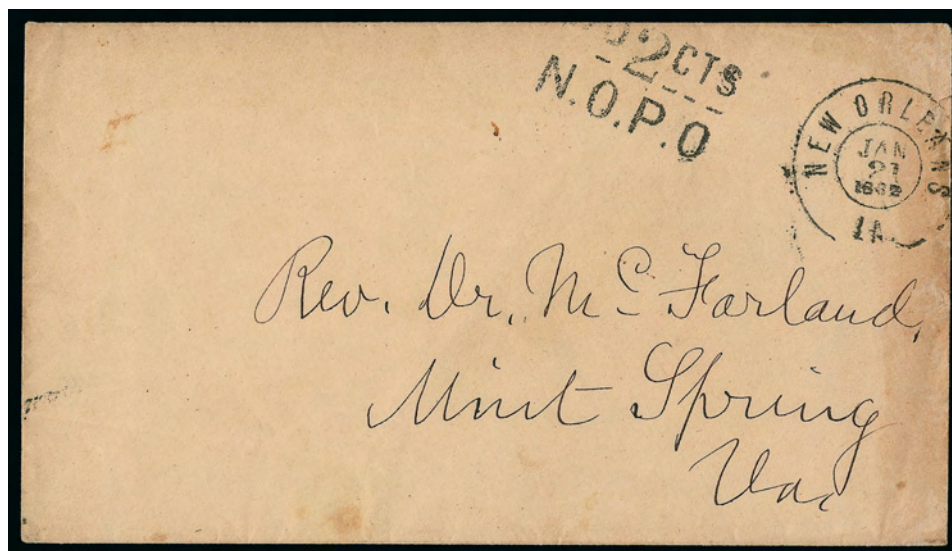 2 CTS
N.O.P.O
NEW ORLEANS
JAN
21
1862
LA.
Rev. Dr. Mc Farland,
Mint Spring
Va.